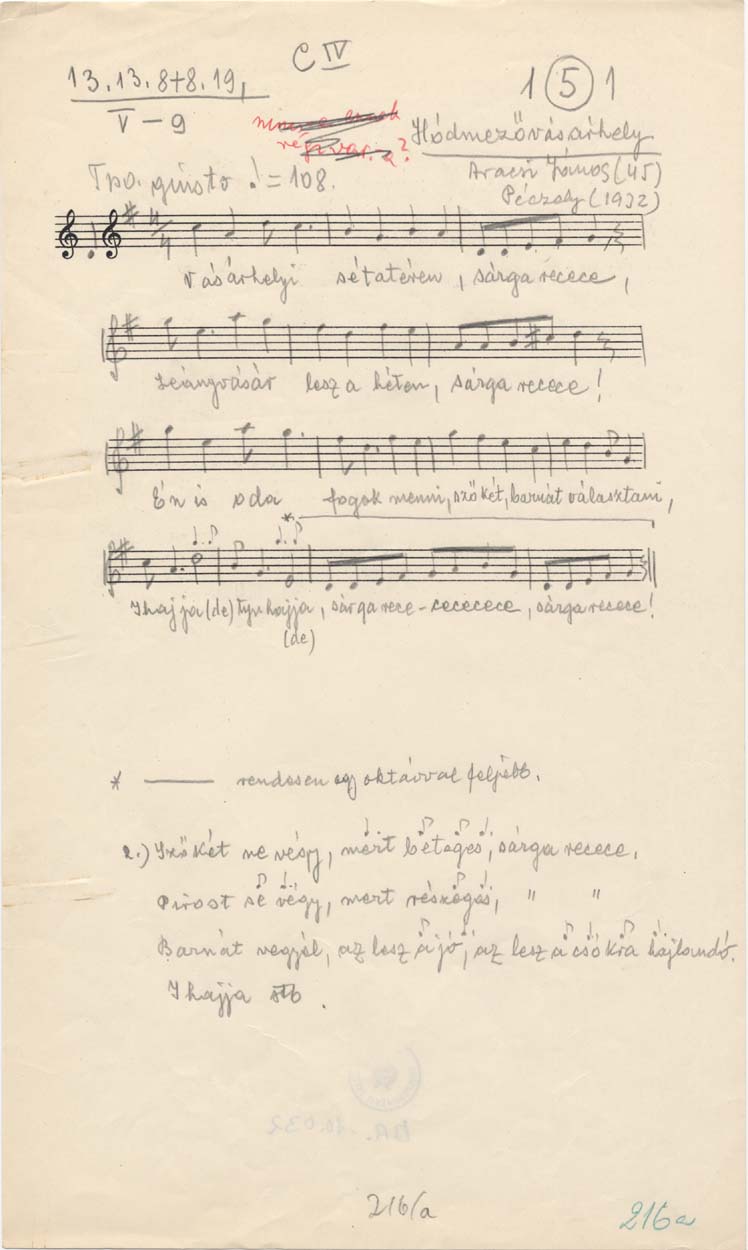 C IV
13. 13. 8+8. 19,
V – 9
1 (5) 1
Hódmezővásárhely
Aracsi János (45)
Péczely (1932)
régi var. a?
Tpo. giusto ♩ = 108.
Vásárhelyi sétatéren, sárga recece,
Leányvásár lesz a héten, sárga recece!
Én is oda fogok menni, szőkét, barnát választani,
Ihajja (de) tyuhajja, sárga rece-cececece, sárga recece!
(de)
* —— rendesen egy oktávval feljebb.
2.) Szőkét ne végy, mert beteges, sárga recece,
Pirost se végy, mert részeges, " "
Barnát vegyél, az lesz a jó, az lesz a csókra hajlandó.
Ihajja stb.
216/a
216a